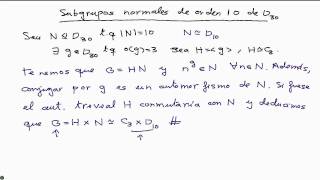 Subgrupos normales de orden 10 de D₃₀
Sea N ⊴ D₃₀ tq |N|=10 N ≅ D₁₀
∃ g ∈ D₃₀ tq o(g)=3 sea H=<g>, H≅C₃.
tenemos que G=HN y n^g ∈ N ∀n∈N. Además,
conjugar por g es un automorfismo de N. Si fuese
el aut. trivial H conmutaría con N y deducimos
que G = H × N ≅ C₃ × D₁₀ #